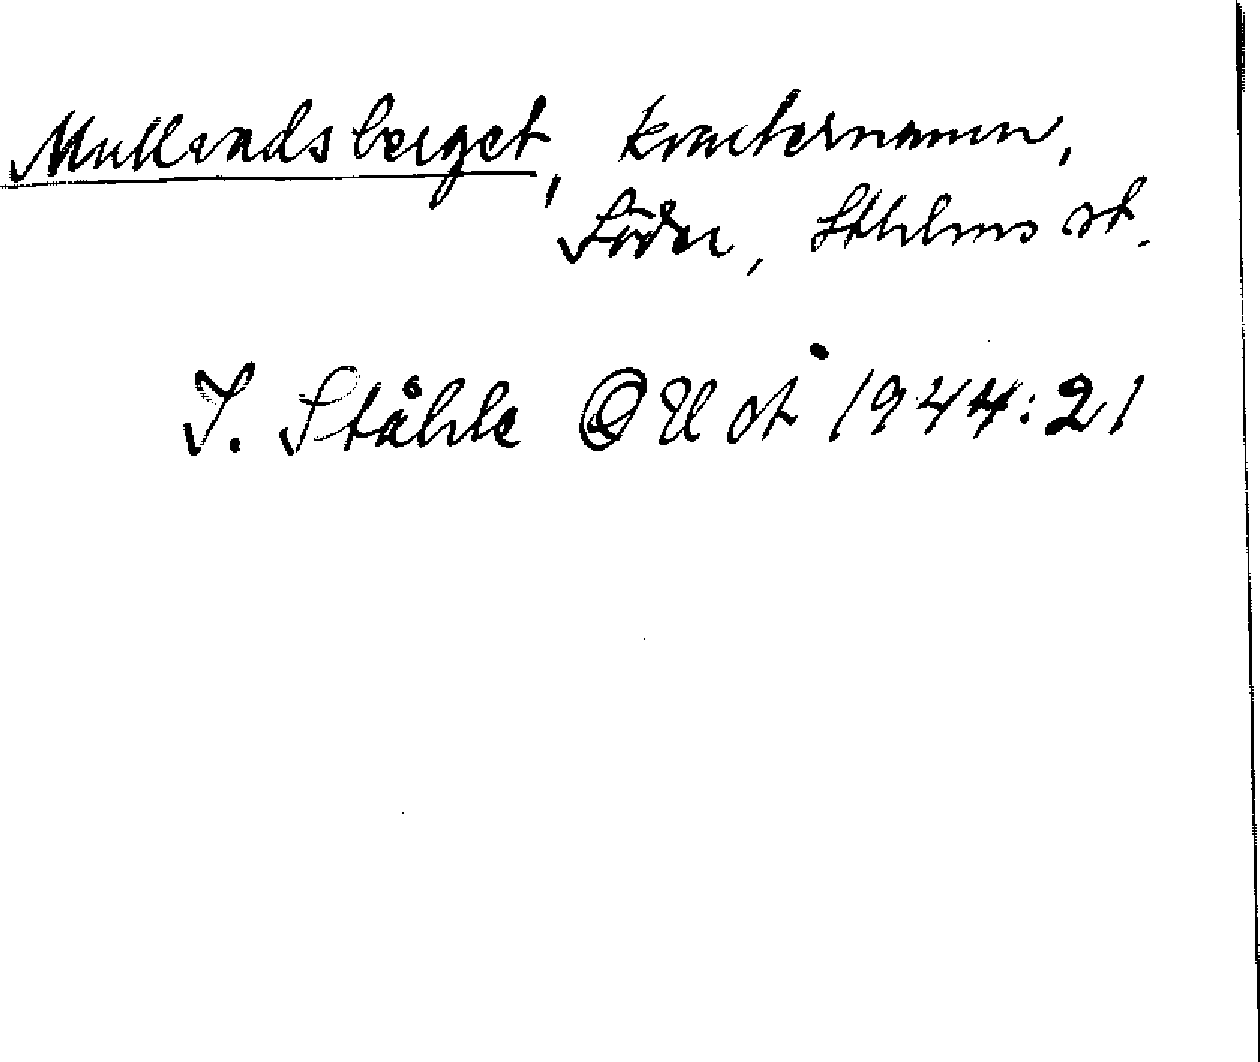 Mullvadsberget, kvartersnamn,
Söder, Sthlms st.
I. Ståhle OUÅ 1944:21